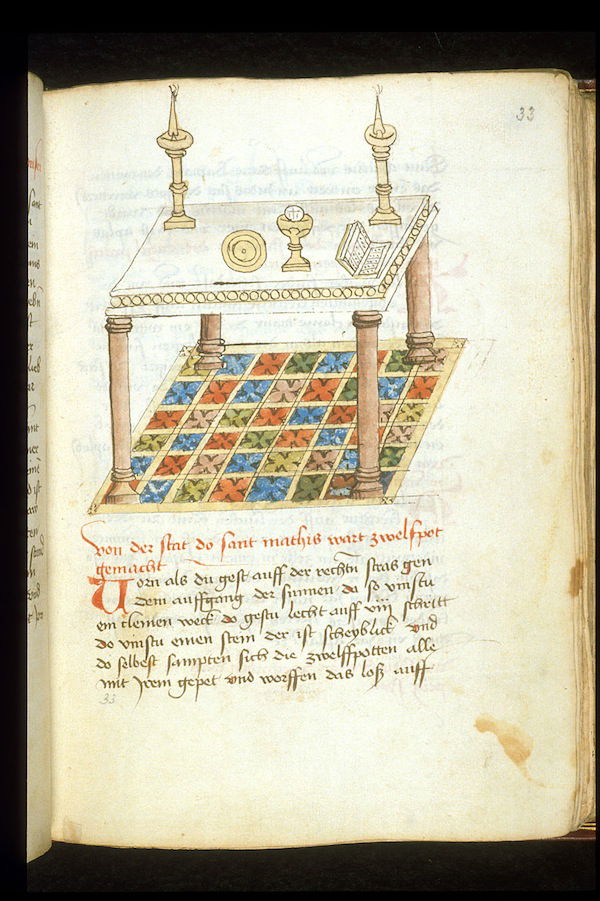 33
von der stat do sant mathis wart zwelfpot
gemacht
Vorn als du gest auff der rechtn stras gen
dem auffgang der sunnen da so vinstu
ein cleinen weck do gestu lecht auff viij schritt
do vinstu einen stein der ist scheyblick vnd
do selbest sampten sich die zwelffpotten alle
mit jrem gepet vnd worffen das loß auff
33